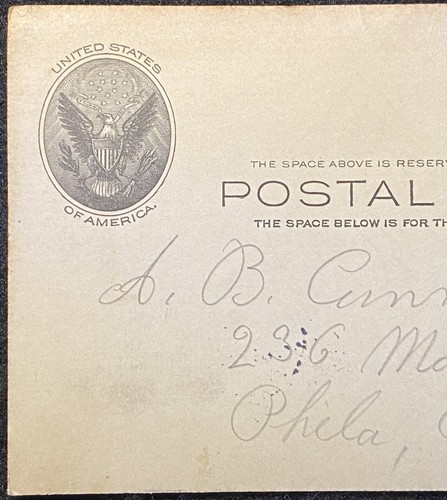 UNITED STATES
OF AMERICA.
THE SPACE ABOVE IS RESERV
POSTAL
THE SPACE BELOW IS FOR TH
A. B. Cunn
236 Ma
Phela,